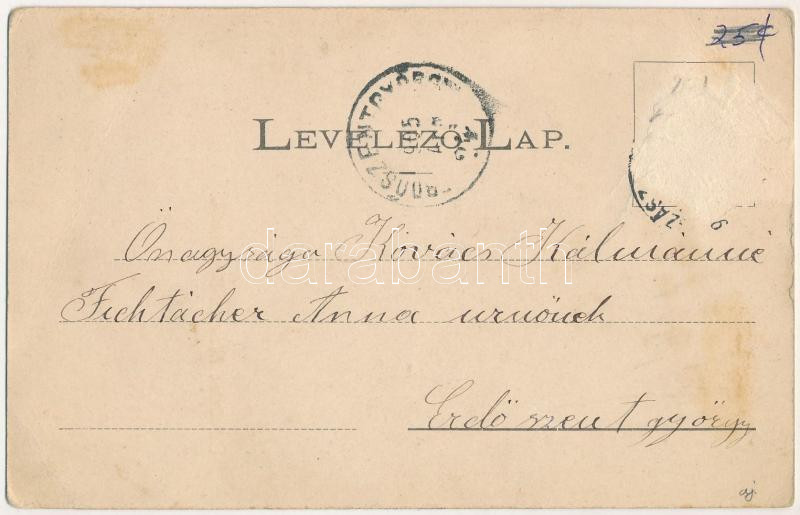 25¢
LEVELEZŐ LAP.
905
Önagysága Kovács Kálmánné
Fichtácher Anna urnőnek
Erdő szent györgy
darabanth